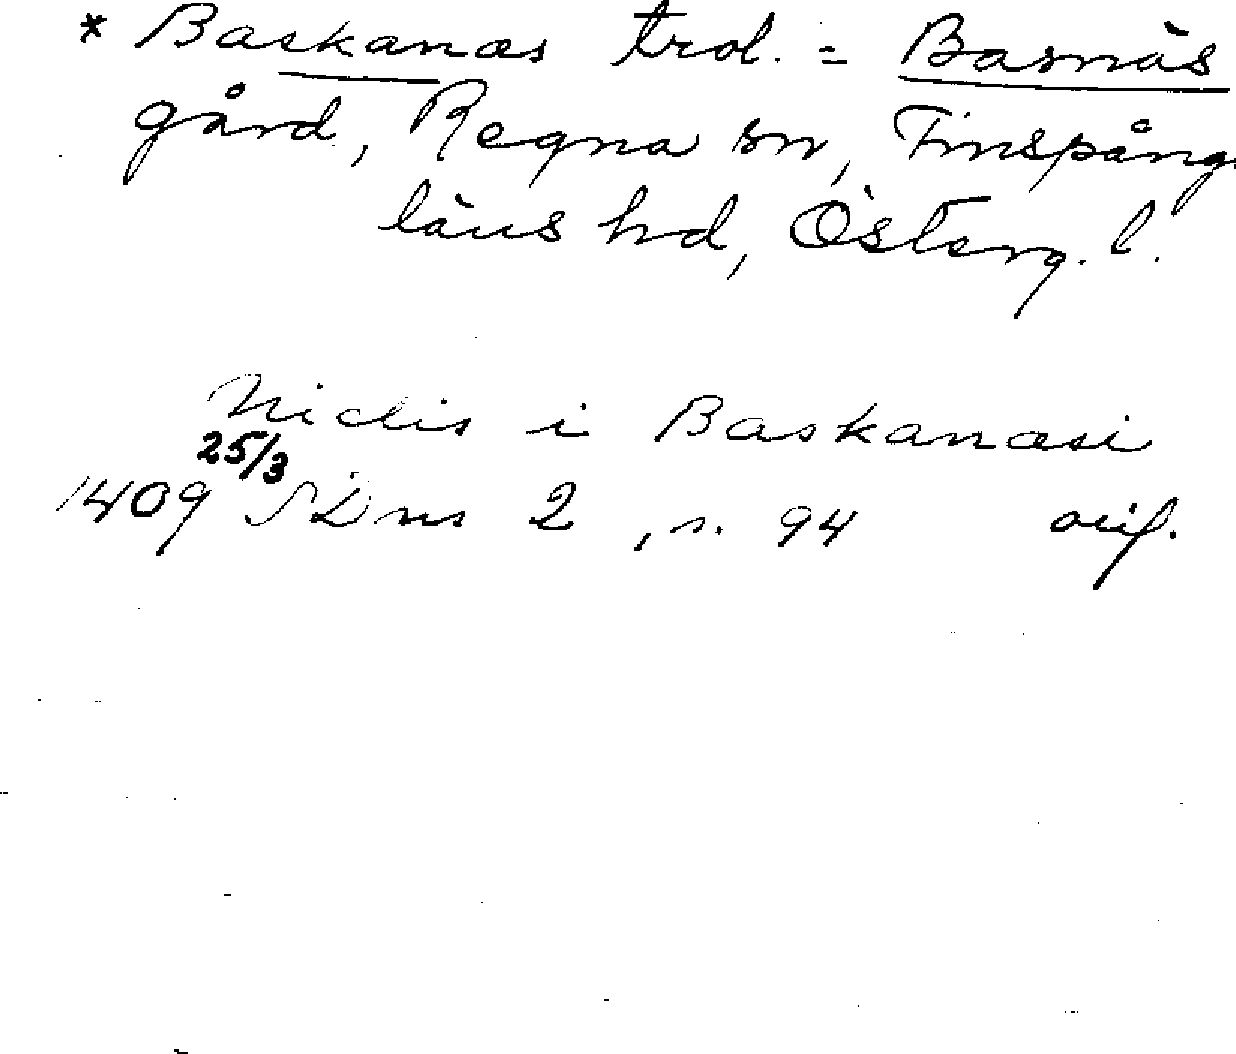 * Baskanæs trol. = Basnäs
gård, Regna sn, Finspång
läns hd, Österg. l.
Niclis i Baskanæsi
25/3
1409 SDns 2, s. 94 orig.